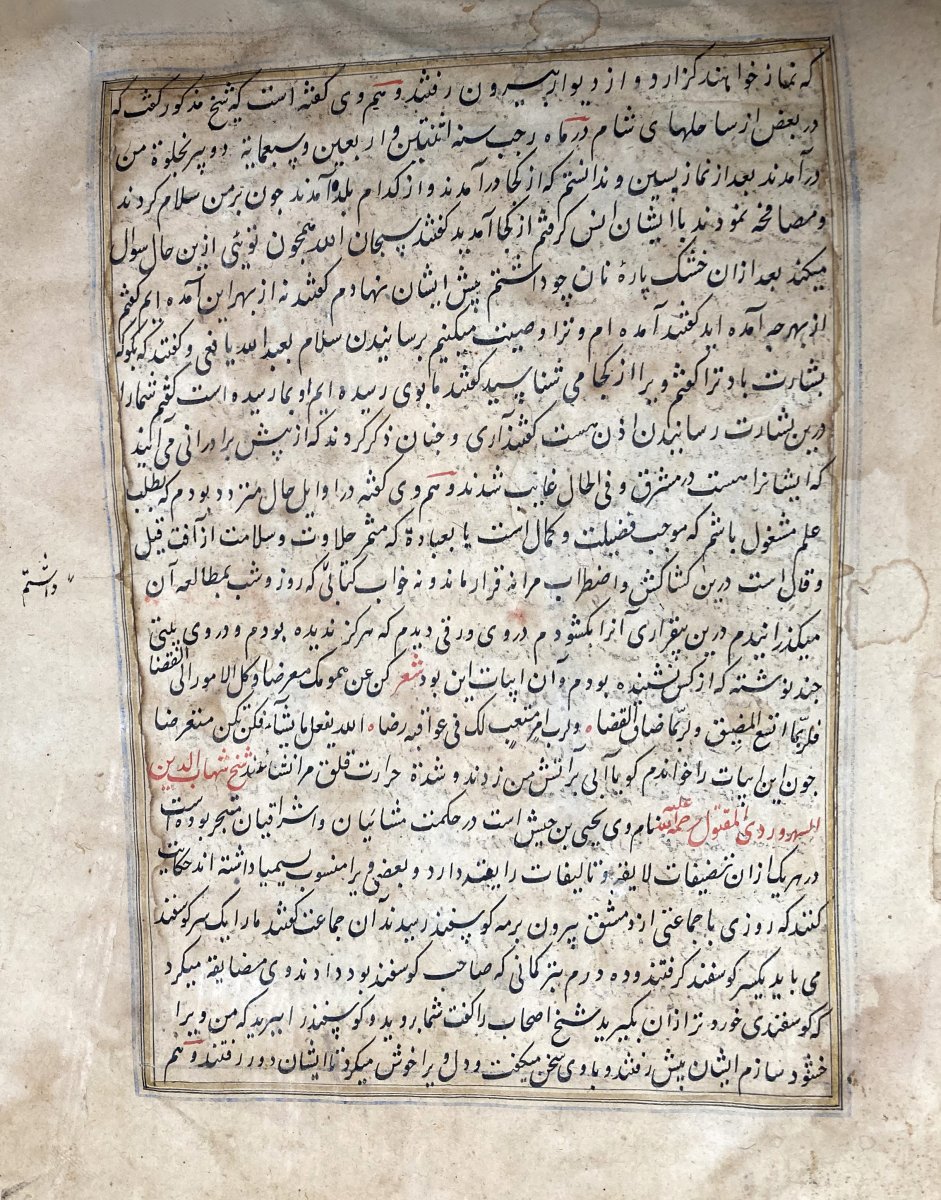 که نماز خواهند گزارد و از دیوار بیرون رفتند و هم وی گفته است که شیخ مذکور گفت که
در بعض از ساحلهای شام در ماه رجب سنه اثنتین و اربعین و سبعمایة دو پیر بخلوة من
درآمدند بعد از نماز پسین و ندانستم که از کجا درآمدند و از کدام بلده آمدند جون بر من سلام کردند
و مصافحه نمودند با ایشان انس کرفتم از کجا آمدید کفتند سبحان الله همجون تویئی ازین حال سوال
میکند بعد ازان خشک پارهٔ نان جو داشتم پیش ایشان نهادم کفتند نه از بهر این آمده ایم کفتم
از بهر جه آمده اید کفتند آمده ام و ترا وصیت میکنیم برسانیدن سلام بعبد الله یافعی و کفتند که بکو که
بشارت باد ترا کفتم ویرا از کجا می شناسید کفتند ما بوی رسیده ایم او بما رسیده است کفتم شما را
درین بشارت رسانیدن اذن هست کفتند آری و جنان ذکر کردند که از پیش برادرانی می آیند
که ایشانرا هست در مشرق و فی الحال غایب شدند و هم وی کفته در اوایل حال متردد بودم که بطلب
علم مشغول باشم که موجب فضیلت و کمال است یا بعبادة که مثمر حلاوت و سلامت از آفت قیل
و قال است درین کشاکش و اضطراب مرا نه قرار ماند و نه خواب کتابی که روز و شب بمطالعه آن
میکذرانیدم درین بیقراری آنرا بکشودم در وی ورقی دیدم که هرکز ندیده بودم و در وی بیتی
جند نوشته که از کس نشنیده بودم و آن ابیات این بود شعر کن عن همومک معرضا و کل الامور الی القضا
فلربما اتسع المضیق و لربما ضاق الفضاه و لرب امر متعب لک فی عواقبه رضاه الله یفعل ما یشآء فلا تکن متعرضا
جون این ابیات را خواندم کویا آبی بر آتش من زدند و شدة حرارت قلق مرا نشاندند شیخ شهاب الدین
السهروردی المقتول رحمة الله علیه نام وی یحیی بن حبش است در حکمت مشائیان و اشراقیان متبحر بوده است
در هر یک ازان تصنیفات لایقه و تالیفات رایقه دارد و بعضی ویرا منسوب بسیمیا داشته اند حکایت
کنند که روزی با جماعتی از دمشق بیرون برمه کوسپند رسیدند آن جماعت کفتند مارا یک سر کوسفند
می باید یکسر کوسفند کرفتند و ده درم بترکمانی که صاحب کوسفند بود دادند و وی مضایقه میکرد
که کوسفندی خوردتر ازان بکیرید شیخ اصحاب را کفت شما روید و کوسپند را ببرید که من ویرا
خشنود سازم ایشان پیش رفتند و با وی سخن میکفت و دل ویرا خوش میکرد تا ایشان دور رفتند و هم